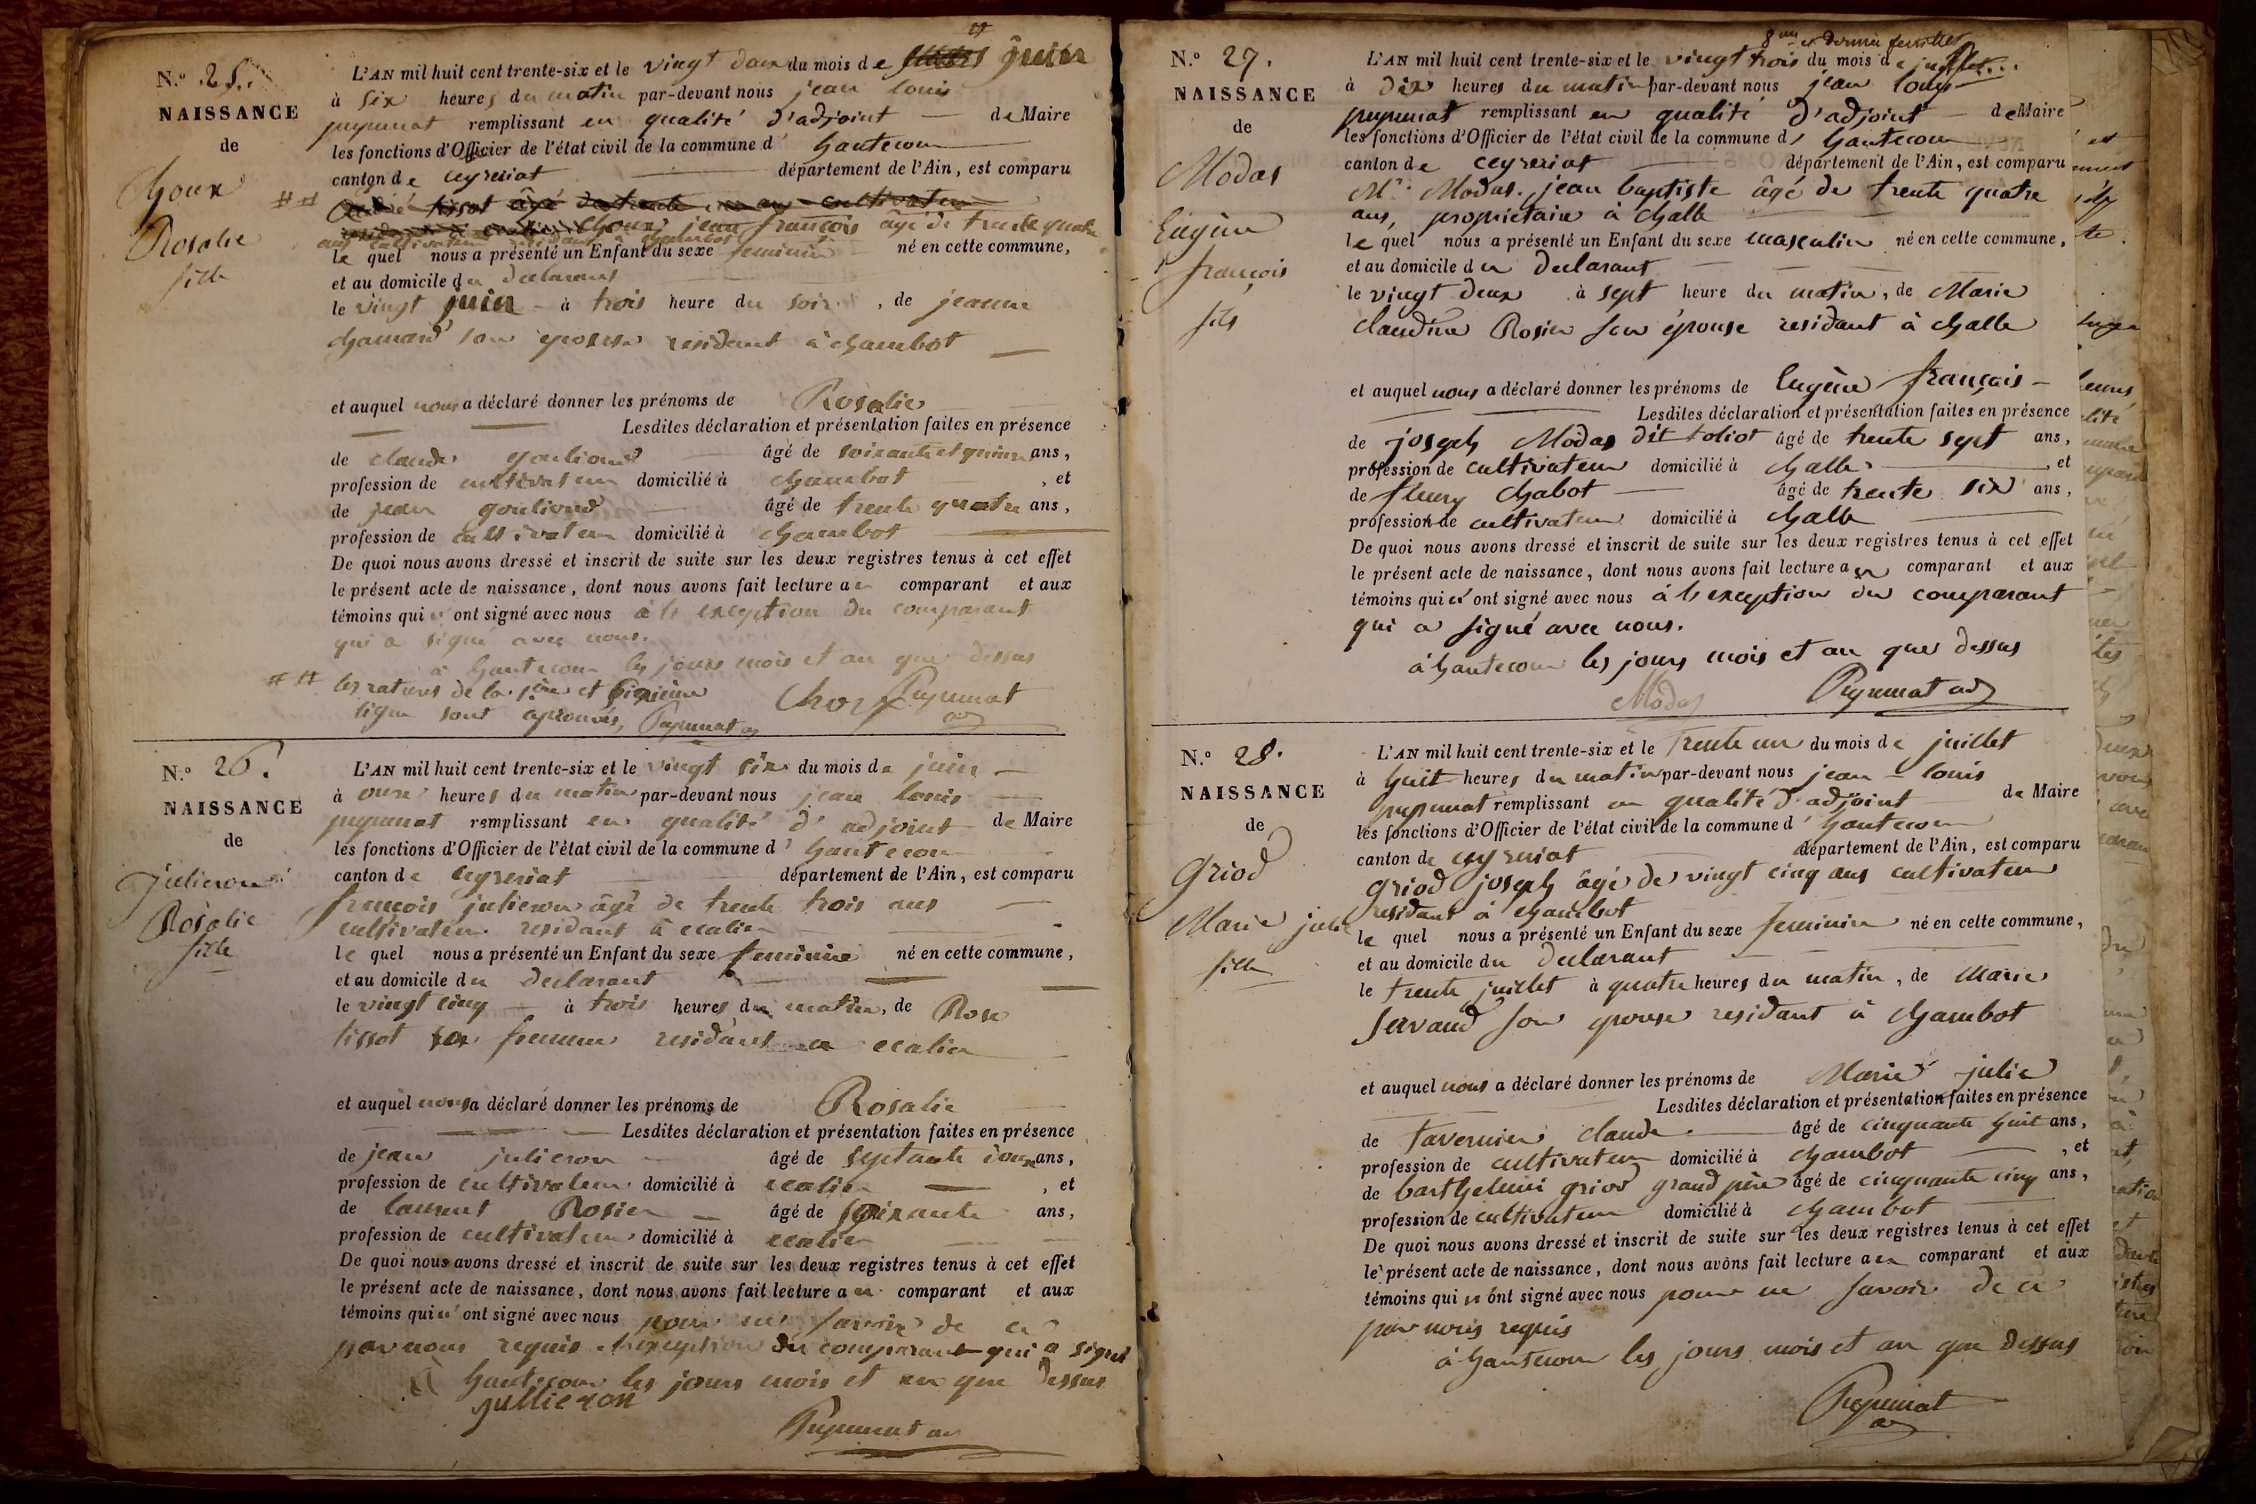 N.° 25.
NAISSANCE
de
Choux
Rosalie
fille
L'AN mil huit cent trente-six et le vingt deux du mois de juin
à six heures du matin par-devant nous jean louis
pupunat remplissant en qualité d'adjoint de Maire
les fonctions d'Officier de l'état civil de la commune d' hautecour
canton de ceyzeriat département de l'Ain, est comparu
choux jean françois âgé de trente quatre
ans cultivateur résidant à chambot
le quel nous a présenté un Enfant du sexe feminin né en cette commune,
et au domicile du declarant
le vingt juin à trois heure du soir, de jeanne
chanard son epouse residant à chambot
et auquel nous a déclaré donner les prénoms de Rosalie
Lesdites déclaration et présentation faites en présence
de claude goulioud âgé de soixante et quinze ans,
profession de cultivateur domicilié à chambot, et
de jean goulioud âgé de trente quatre ans,
profession de cultivateur domicilié à chambot
De quoi nous avons dressé et inscrit de suite sur les deux registres tenus à cet effet
le présent acte de naissance, dont nous avons fait lecture au comparant et aux
témoins qui n'ont signé avec nous à le exception du comparant
qui a signé avec nous.
à hautecour les jours mois et an que dessus
les ratures de la 1ere et sixieme
ligne sont aprouvés, Pupunat adj
Choux Pupunat
adj
N.° 26.
NAISSANCE
de
julieron
Rosalie
fille
L'AN mil huit cent trente-six et le vingt six du mois de juin
à onze heures du matin par-devant nous jean louis
pupunat remplissant en qualité d'adjoint de Maire
les fonctions d'Officier de l'état civil de la commune d' hautecour
canton de ceyzeriat département de l'Ain, est comparu
françois julieron âgé de trente trois ans
cultivateur residant à
le quel nous a présenté un Enfant du sexe feminin né en cette commune,
et au domicile du declarant
le vingt cinq à trois heures du matin, de Rose
tissot sa femme residant a
et auquel nous a déclaré donner les prénoms de Rosalie
Lesdites déclaration et présentation faites en présence
de jean julieron âgé de septante ans,
profession de cultivateur domicilié à, et
de laurent Rosier âgé de soixante ans,
profession de cultivateur domicilié à
De quoi nous avons dressé et inscrit de suite sur les deux registres tenus à cet effet
le présent acte de naissance, dont nous avons fait lecture au comparant et aux
témoins qui n'ont signé avec nous pour ne savoir de ce
par nous requis l'exception du comparant qui a signé
à hautecour les jours mois et an que dessus
jullieron
Pupunat adj
N.° 27.
NAISSANCE
de
Modas
Eugène
françois
fils
8me et dernier feuillet
L'AN mil huit cent trente-six et le vingt trois du mois de juillet
à dix heures du matin par-devant nous jean louis
pupunat remplissant en qualité d'adjoint de Maire
les fonctions d'Officier de l'état civil de la commune d' hautecour
canton de ceyzeriat département de l'Ain, est comparu
Mr. Modas jean baptiste âgé de trente quatre
ans, propriétaire à challe
le quel nous a présenté un Enfant du sexe masculin né en cette commune,
et au domicile du declarant
le vingt deux à sept heure du matin, de Marie
claudine Rosier son épouse residant à challe
et auquel nous a déclaré donner les prénoms de Eugène françois
Lesdites déclaration et présentation faites en présence
de joseph Modas dit toliot âgé de trente sept ans,
profession de cultivateur domicilié à challe, et
de fleury chabot âgé de trente six ans,
profession de cultivateur domicilié à challe
De quoi nous avons dressé et inscrit de suite sur les deux registres tenus à cet effet
le présent acte de naissance, dont nous avons fait lecture au comparant et aux
témoins qui n'ont signé avec nous à le exception du comparant
qui a signé avec nous.
à hautecour les jours mois et an que dessus
Modas Pupunat adj
N.° 28.
NAISSANCE
de
Griod
Marie julie
fille
L'AN mil huit cent trente-six et le trente un du mois de juillet
à huit heures du matin par-devant nous jean louis
pupunat remplissant en qualité d'adjoint de Maire
les fonctions d'Officier de l'état civil de la commune d' hautecour
canton de ceyzeriat département de l'Ain, est comparu
Griod joseph âgé de vingt cinq ans cultivateur
residant à chambot
le quel nous a présenté un Enfant du sexe feminin né en cette commune,
et au domicile du declarant
le trente juillet à quatre heures du matin, de Marie
servand son epouse residant à chambot
et auquel nous a déclaré donner les prénoms de Marie julie
Lesdites déclaration et présentation faites en présence
de Tavernier claude âgé de cinquante huit ans,
profession de cultivateur domicilié à chambot, et
de barthelemi griod grand père âgé de cinquante cinq ans,
profession de cultivateur domicilié à chambot
De quoi nous avons dressé et inscrit de suite sur les deux registres tenus à cet effet
le présent acte de naissance, dont nous avons fait lecture au comparant et aux
témoins qui n'ont signé avec nous pour ne savoir de ce
par nous requis
à hautecour les jours mois et an que dessus
Pupunat
adj